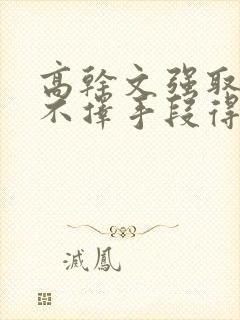 高幹文強取
不擇手段得
滅鳳